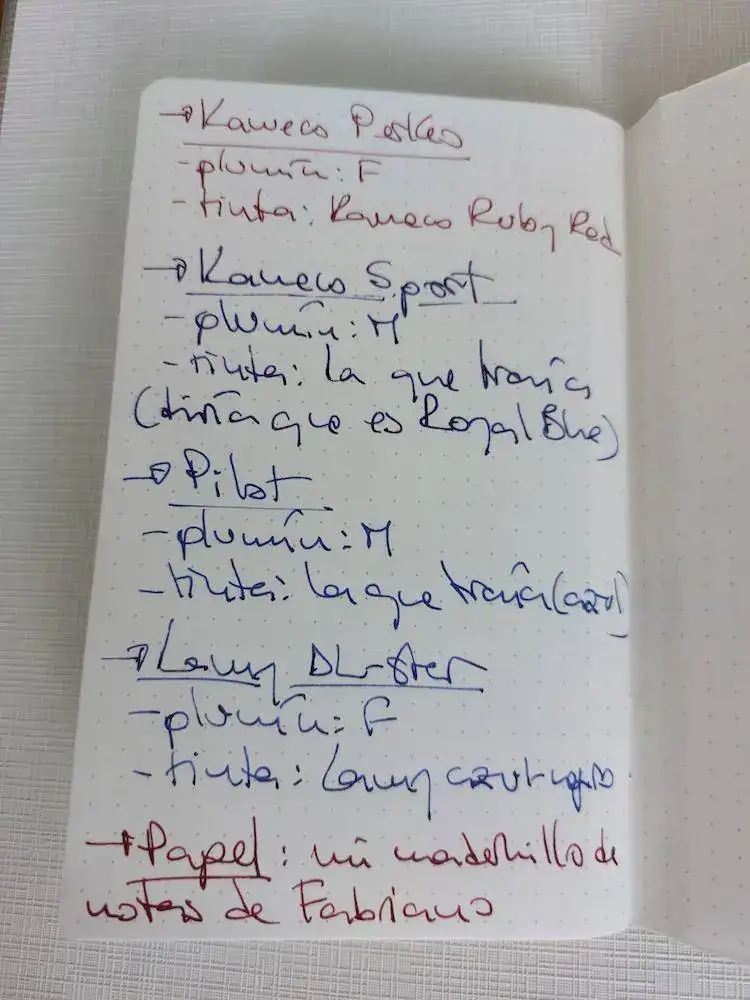 → Kaweco Perkeo
- plumín: F
- tinta: Kaweco Ruby Red
→ Kaweco Sport
- plumín: M
- tinta: la que traía
(diría que es Royal Blue)
→ Pilot
- plumín: M
- tinta: la que traía (azul)
→ Lamy AL-Star
- plumín: F
- tinta: Lamy azul
→ Papel: mi cuadernillo de
notas de Fabriano